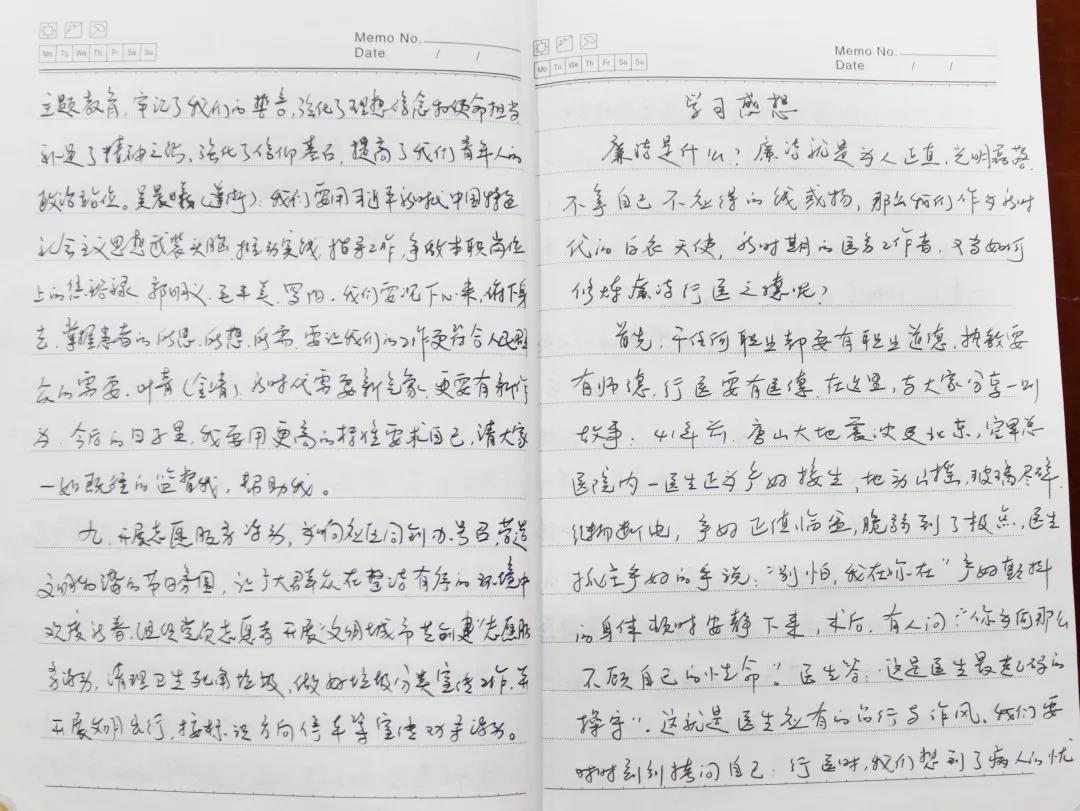 Memo No.
Date / /
Mo Tu We Th Fr Sa Su
主题教育，牢记了我们的誓言，强化了理想信念和使命担当
补足了精神之钙，强化了信仰基石，提高了我们青年人的
政治站位。吴晨曦（莲街）：我们要用习近平新时代中国特色
社会主义思想武装头脑，推动实践，指导工作，争做本职岗位
上的焦裕禄、郭明义、毛丰美、罗阳。我们要沉下心来，俯下身
去，掌握患者的所思、所想、所需，要让我们的工作更符合人民群
众的需要。叶青（金青）：新时代需要新气象，更要有新作
为，今后的日子里，我要用更高的标准要求自己，请大家
一如既往的监督我，帮助我。
九、开展志愿服务活动，为响应区同创办号召，营造
文明和谐的节日氛围，让广大群众在整洁有序的环境中
欢度新春，组织党员志愿者开展“文明城市共创建”志愿服
务活动，清理卫生死角垃圾，做好垃圾分类宣传工作，并
开展文明出行，按标识方向停车等宣传劝导活动。
Memo No.
Date / /
Mo Tu We Th Fr Sa Su
学习感想
廉洁是什么？廉洁就是为人正直，光明磊落，
不拿自己不应得的钱或物，那么我们作为新时
代的白衣天使，新时期的医务工作者，又当如何
修炼廉洁行医之德呢？
首先，干任何职业都要有职业道德，执教要
有师德，行医要有医德，在这里，与大家分享一则
故事：41年前，唐山大地震波及北京，空军总
医院内一医生正为产妇接生，地动山摇，玻璃尽碎，
断电，产妇正值临盆，脆弱到了极点，医生
抓住产妇的手说：“别怕，我在你在”产妇颤抖
的身体顿时安静下来，术后，有人问：“你为何那么
不顾自己的性命”？医生答：“这是医生最起码的
操守”。这就是医生应有的品行与作风，我们要
时时刻刻拷问自己：行医时，我们想到了病人的忧